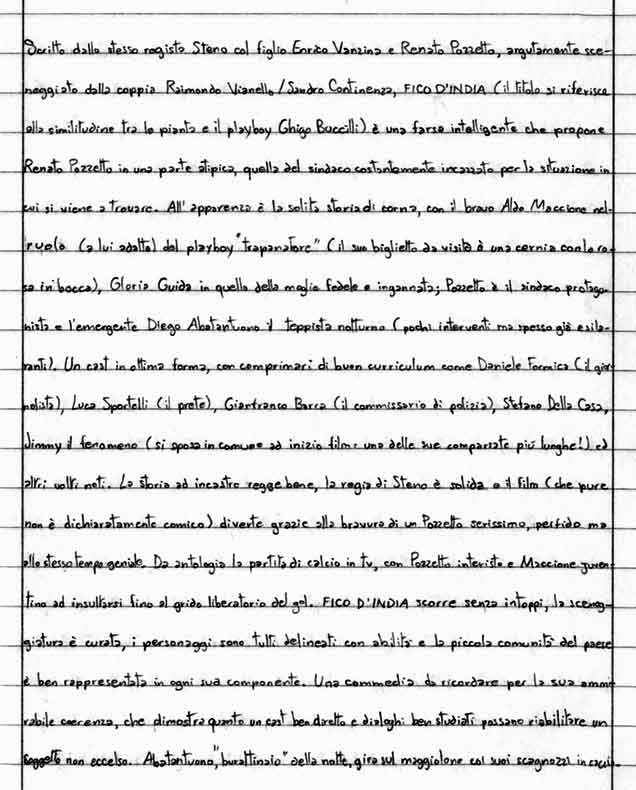 Scritto dallo stesso regista Steno col figlio Enrico Vanzina e Renato Pozzetto, argutamente sce-
neggiato dalla coppia Raimondo Vianello/Sandro Continenza, FICO D'INDIA (il titolo si riferisce
alla similitudine tra la pianta e il playboy Ghigo Buccilli) è una farsa intelligente che propone
Renato Pozzetto in una parte atipica, quella del sindaco costantemente incazzato per la situazione in
cui si viene a trovare. All'apparenza è la solita storia di corna, con il bravo Aldo Maccione nel
ruolo (a lui adatto) del playboy "trapanatore" (il suo biglietto da visita è una cernia con la ro-
sa in bocca), Gloria Guida in quello della moglie fedele e ingannata; Pozzetto è il sindaco protago-
nista e l'emergente Diego Abatantuono il teppista notturno (pochi interventi ma spesso già esila-
ranti). Un cast in ottima forma, con comprimari di buon curriculum come Daniele Formica (il gior-
nalista), Luca Sportelli (il prete), Gianfranco Barra (il commissario di polizia), Stefano Della Casa,
Jimmy il fenomeno (si sposa in comune ad inizio film: una delle sue comparsate più lunghe!) ed
altri volti noti. La storia ad incastro regge bene, la regia di Steno è solida e il film (che pure
non è dichiaratamente comico) diverte grazie alla bravura di un Pozzetto serissimo, perfido ma
allo stesso tempo geniale. Da antologia la partita di calcio in tv, con Pozzetto interista e Maccione juven-
tino ad insultarsi fino al grido liberatorio del gol. FICO D'INDIA scorre senza intoppi, la sceneg-
giatura è curata, i personaggi sono tutti delineati con abilità e la piccola comunità del paese
è ben rappresentata in ogni sua componente. Una commedia da ricordare per la sua ammi-
rabile coerenza, che dimostra quanto un cast ben diretto e dialoghi ben studiati possano riabilitare un
soggetto non eccelso. Abatantuono, "burattinaio" della notte, gira sul maggiolone coi suoi scagnozzi in